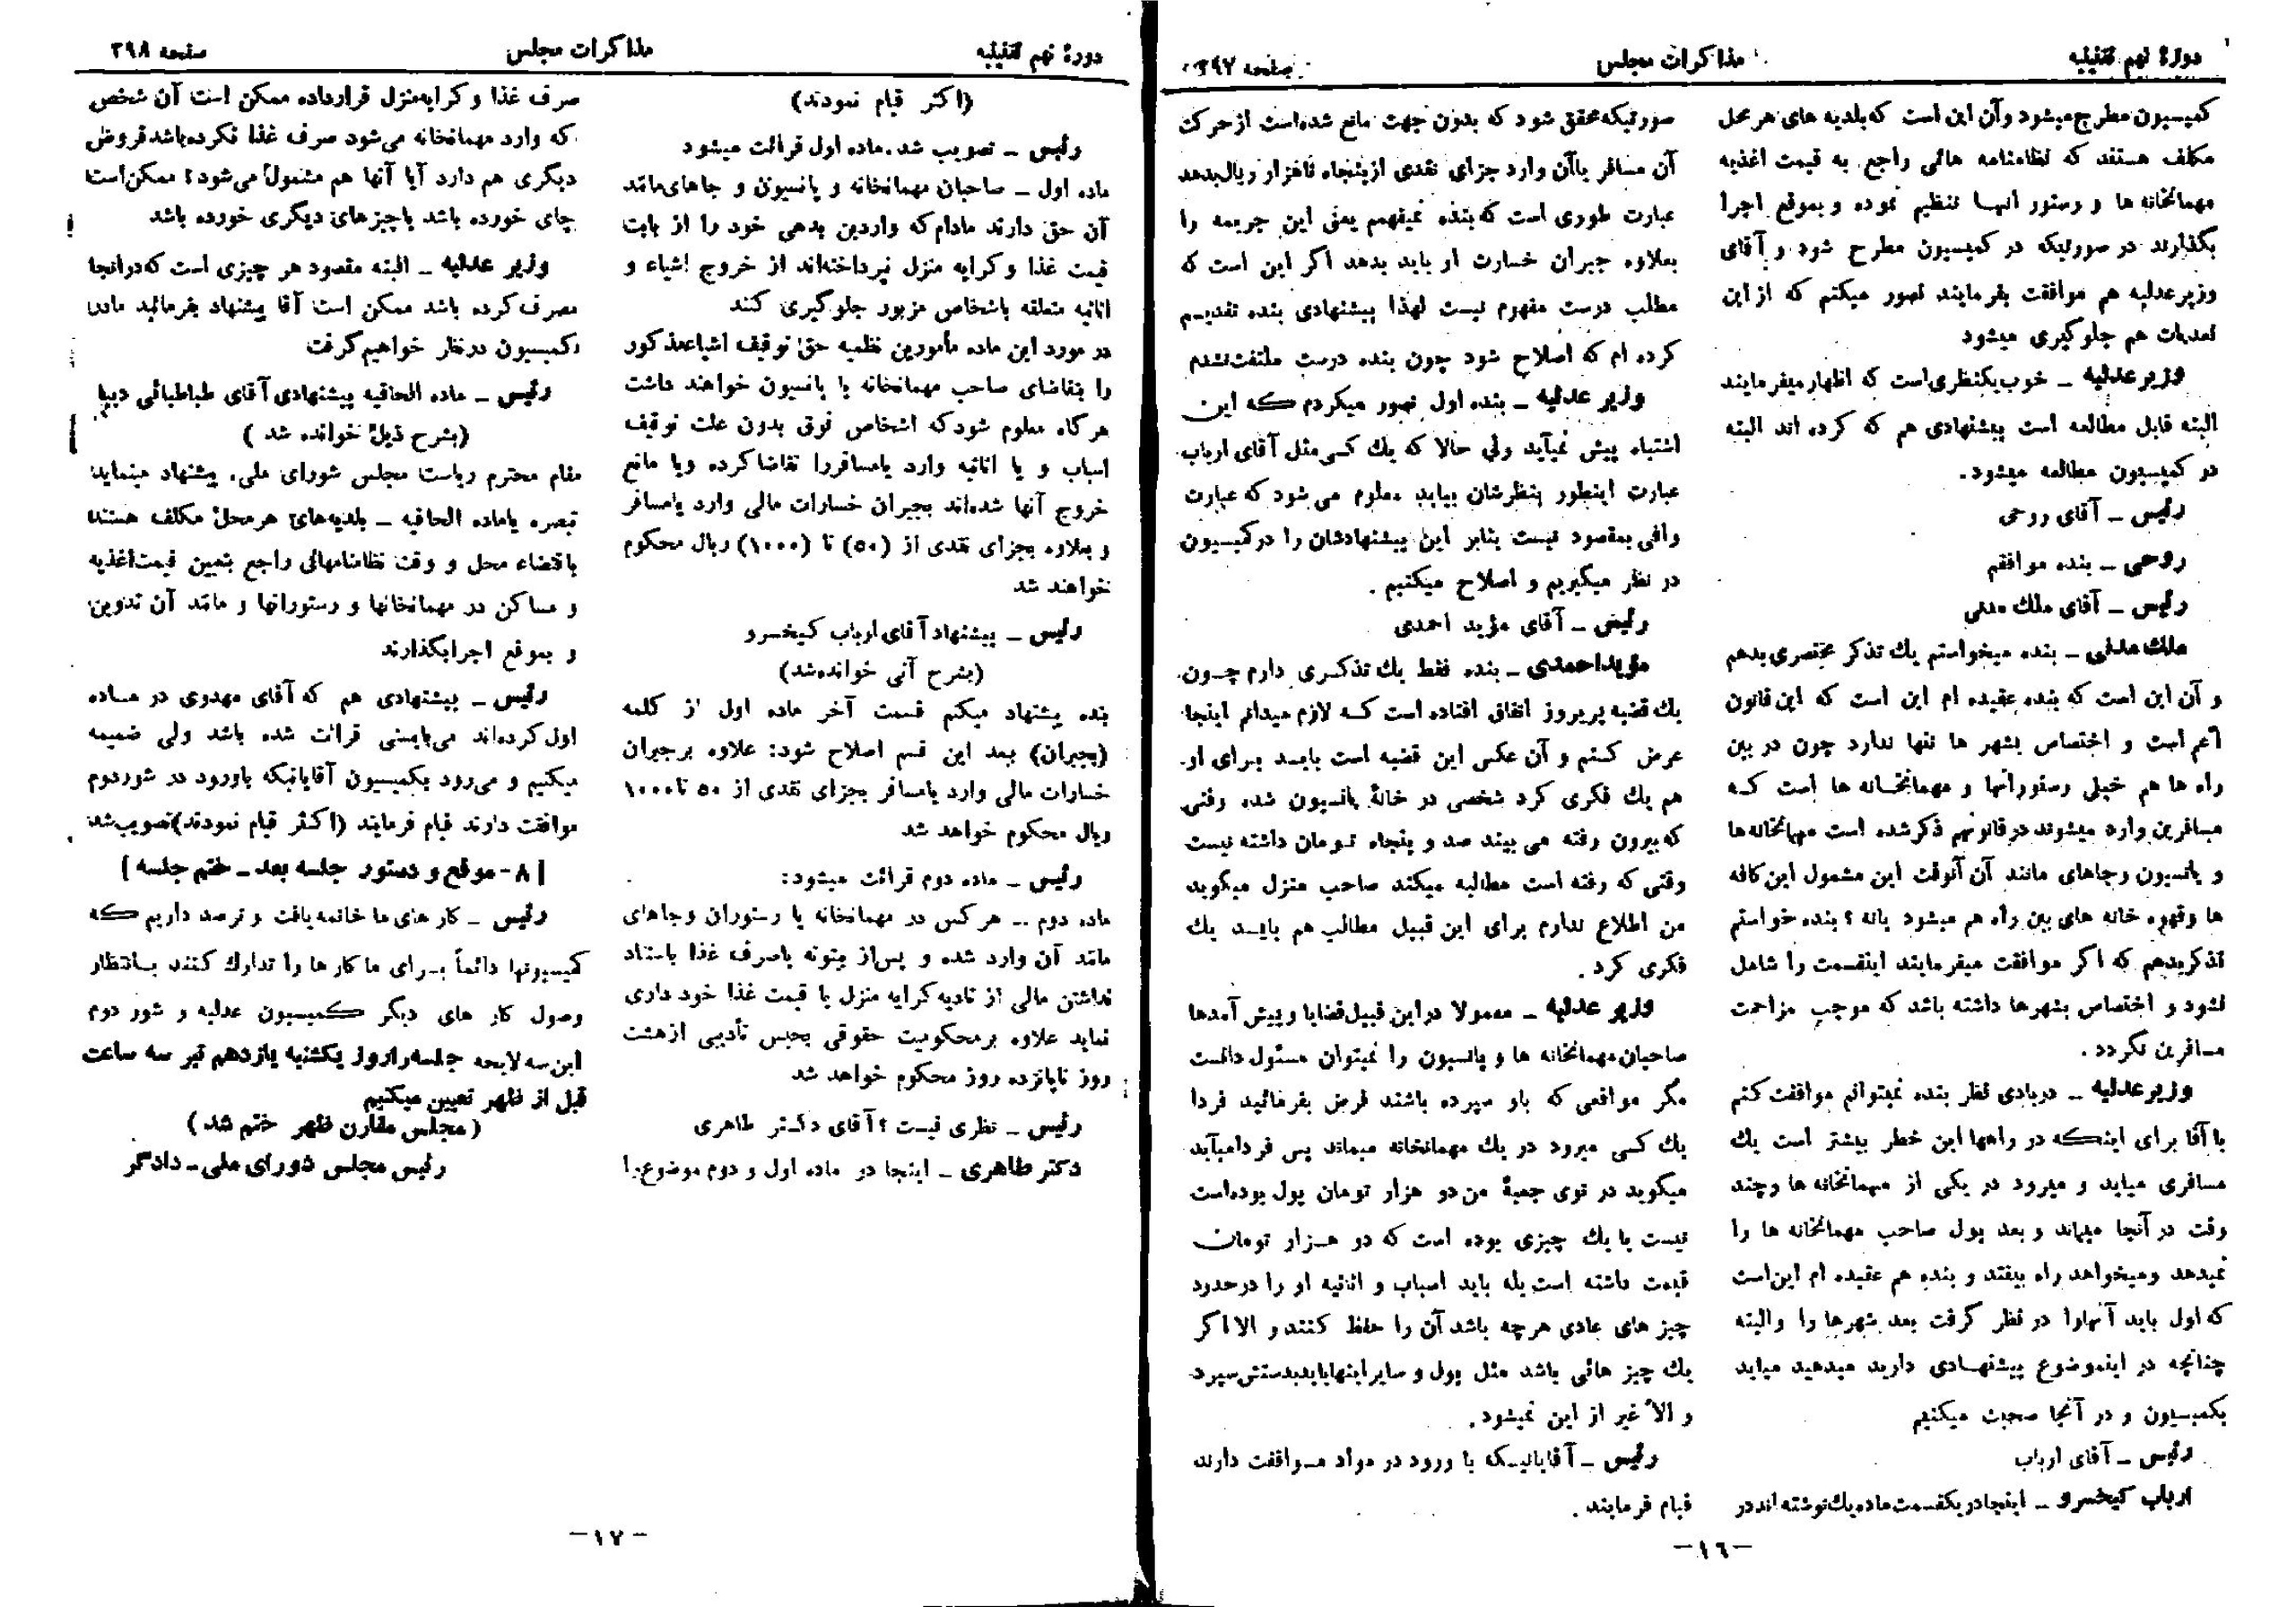 دورهٔ نهم تقنینیه
مذاکرات مجلس
صفحه ۳۹۷
کمیسیون مطرح میشود و آن این است که بلدیه های هر محل
مکلف هستند که نظامنامه هائی راجع به قیمت اغذیه
مهمانخانه ها و رستور انها تنظیم نموده و بموقع اجرا
بگذارند در صورتیکه در کمیسیون مطرح شود و آقای
وزیر عدلیه هم موافقت بفرمایند تصور میکنم که از این
تعدیات هم جلوگیری میشود
وزیر عدلیه ـ خوب یکنظری است که اظهار میفرمایند
البته قابل مطالعه است پیشنهادی هم که کرده اند البته
در کمیسیون مطالعه میشود.
رئیس ـ آقای روحی
روحی ـ بنده موافقم
رئیس ـ آقای ملك مدنی
ملك مدنی ـ بنده میخواستم یك تذکر مختصری بدهم
و آن این است که بنده عقیده ام این است که این قانون
اعم است و اختصاص بشهر ها تنها ندارد چون در بین
راه ها هم خیلی رستورانها و مهمانخانه ها است که
مسافرین وارد میشوند در قانونهم ذکر شده است مهمانخانه ها
و پانسیون و جاهای مانند آن آنوقت این مشمول این کافه
ها و قهوه خانه های بین راه هم میشود یا نه؟ بنده خواستم
تذکر بدهم که اگر موافقت میفرمایند اینقسمت را شامل
نشود و اختصاص بشهرها داشته باشد که موجب مزاحمت
مسافرین نگردد.
وزیر عدلیه ـ در بادی نظر بنده نمیتوانم موافقت کنم
با آقا برای اینکه در راهها این خطر بیشتر است یك
مسافری میاید و میرود در یکی از مهمانخانه ها و چند
وقت در آنجا میماند و بعد پول صاحب مهمانخانه ها را
نمیدهد و میخواهد راه بیفتد و بنده هم عقیده ام این است
که اول باید آنهارا در نظر گرفت بعد شهرها را و البته
چنانچه در اینموضوع پیشنهادی دارید میدهید میاید
بکمیسیون و در آنجا صحبت میکنیم
رئیس ـ آقای ارباب
ارباب کیخسرو ـ اینجا در یکقسمت ماده یك نوشته اند در
صورتیکه محقق شود که بدون جهت مانع شده است از حرکت
آن مسافر یا آن وارد جزای نقدی از پنجاه تا هزار ریال بدهد
عبارت طوری است که بنده نمیفهمم یعنی این جریمه را
بعلاوه جبران خسارت او باید بدهد اگر این است که
مطلب درست مفهوم نیست لهذا پیشنهادی بنده تقدیم
کرده ام که اصلاح شود چون بنده درست ملتفت نشدم
وزیر عدلیه ـ بنده اول تصور میکردم که این
اشتباه پیش نمیآید ولی حالا که یك کسی مثل آقای ارباب
عبارت اینطور بنظرشان بیاید معلوم می شود که عبارت
وافی بمقصود نیست بنابر این پیشنهادشان را در کمیسیون
در نظر میگیریم و اصلاح میکنیم.
رئیس ـ آقای مؤید احمدی
مؤید احمدی ـ بنده فقط یك تذکری دارم چون
یك قضیه پریروز اتفاق افتاده است که لازم میدانم اینجا
عرض کنم و آن عکس این قضیه است باید برای او
هم یك فکری کرد شخصی در خانهٔ پانسیون شده وقتی
که بیرون رفته می بیند صد و پنجاه تومان داشته نیست
وقتی که رفته است مطالبه میکند صاحب منزل میگوید
من اطلاع ندارم برای این قبیل مطالب هم باید یك
فکری کرد.
وزیر عدلیه ـ معمولا در این قبیل قضایا و پیش آمدها
صاحبان مهمانخانه ها و پانسیون را نمیتوان مسئول دانست
مگر مواقعی که باو سپرده باشند فرض بفرمائید فردا
یك کسی میرود در یك مهمانخانه میماند پس فردا میآید
میگوید در توی جعبهٔ من دو هزار تومان پول بوده است
نیست یا یك چیزی بوده است که دو هزار تومان
قیمت داشته است بله باید اسباب و اثاثیه او را در حدود
چیز های عادی هرچه باشد آن را حفظ کنند و الا اگر
یك چیز هائی باشد مثل پول و سایر اینها باید بدستش سپرد
و الا غیر از این نمیشود.
رئیس ـ آقایانیکه با ورود در مواد موافقت دارند
قیام فرمایند.
ـ۱۶ـ
دورهٔ نهم تقنینیه
مذاکرات مجلس
صفحه ۳۹۸
(اکثر قیام نمودند)
رئیس ـ تصویب شد. ماده اول قرائت میشود
ماده اول ـ صاحبان مهمانخانه و پانسیون و جاهای مانند
آن حق دارند مادام که واردین بدهی خود را از بابت
قیمت غذا و کرایه منزل نپرداخته اند از خروج اشیاء و
اثاثیه متعلقه باشخاص مزبور جلوگیری کنند
در مورد این ماده مأمورین نظمیه حق توقیف اشیاء مذکور
را بتقاضای صاحب مهمانخانه یا پانسیون خواهند داشت
هرگاه معلوم شود که اشخاص فوق بدون علت توقیف
اسباب و یا اثاثیه وارد یا مسافر را تقاضا کرده و یا مانع
خروج آنها شده اند بجبران خسارات مالی وارد یا مسافر
و بعلاوه بجزای نقدی از (۵۰) تا (۱۰۰۰) ریال محکوم
خواهند شد
رئیس ـ پیشنهاد آقای ارباب کیخسرو
(بشرح آتی خوانده شد)
بنده پیشنهاد میکنم قسمت آخر ماده اول از کلمه
(بجبران) بعد این قسم اصلاح شود: علاوه بر جبران
خسارات مالی وارد یا مسافر بجزای نقدی از ۵۰ تا ۱۰۰۰
ریال محکوم خواهد شد
رئیس ـ ماده دوم قرائت میشود:
ماده دوم ـ هر کس در مهمانخانه یا رستوران و جاهای
مانند آن وارد شده و پس از بیتوته یا صرف غذا باستناد
نداشتن مالی از تادیه کرایه منزل یا قیمت غذا خود داری
نماید علاوه بر محکومیت حقوقی بحبس تأدیبی از هشت
روز تا پانزده روز محکوم خواهد شد
رئیس ـ نظری نیست؟ آقای دکتر طاهری
دکتر طاهری ـ اینجا در ماده اول و دوم موضوع را
صرف غذا و کرایه منزل قرار داده ممکن است آن شخص
که وارد مهمانخانه می شود صرف غذا نکرده باشد قروض
دیگری هم دارد آیا آنها هم مشمول می شود؟ ممکن است
چای خورده باشد یا چیز های دیگری خورده باشد
وزیر عدلیه ـ البته مقصود هر چیزی است که در انجا
مصرف کرده باشد ممکن است آقا پیشنهاد بفرمائید مادر
کمیسیون در نظر خواهیم گرفت
رئیس ـ ماده الحاقیه پیشنهادی آقای طباطبائی دیبا
(بشرح ذیل خوانده شد)
مقام محترم ریاست مجلس شورای ملی. پیشنهاد مینماید
تبصره یا ماده الحاقیه ـ بلدیه های هر محل مکلف هستند
باقتضاء محل و وقت نظامنامهائی راجع بتعیین قیمت اغذیه
و مساکن در مهمانخانها و رستورانها و مانند آن تدوین
و بموقع اجرا بگذارند
رئیس ـ پیشنهادی هم که آقای مهدوی در ماده
اول کرده اند می بایستی قرائت شده باشد ولی ضمیمه
میکنیم و می رود بکمیسیون آقایانیکه باورود در شور دوم
موافقت دارند قیام فرمایند (اکثر قیام نمودند) تصویب شد
[ ۸ - موقع و دستور جلسه بعد ـ ختم جلسه ]
رئیس ـ کار های ما خاتمه یافت و ترصد داریم که
کمیسیونها دائماً برای ما کار ها را تدارك کنند بانتظار
وصول کار های دیگر کمیسیون عدلیه و شور دوم
این سه لایحه جلسه را روز یکشنبه یازدهم تیر سه ساعت
قبل از ظهر تعیین میکنیم
(مجلس مقارن ظهر ختم شد)
رئیس مجلس شورای ملی ـ دادگر
ـ۱۷ـ